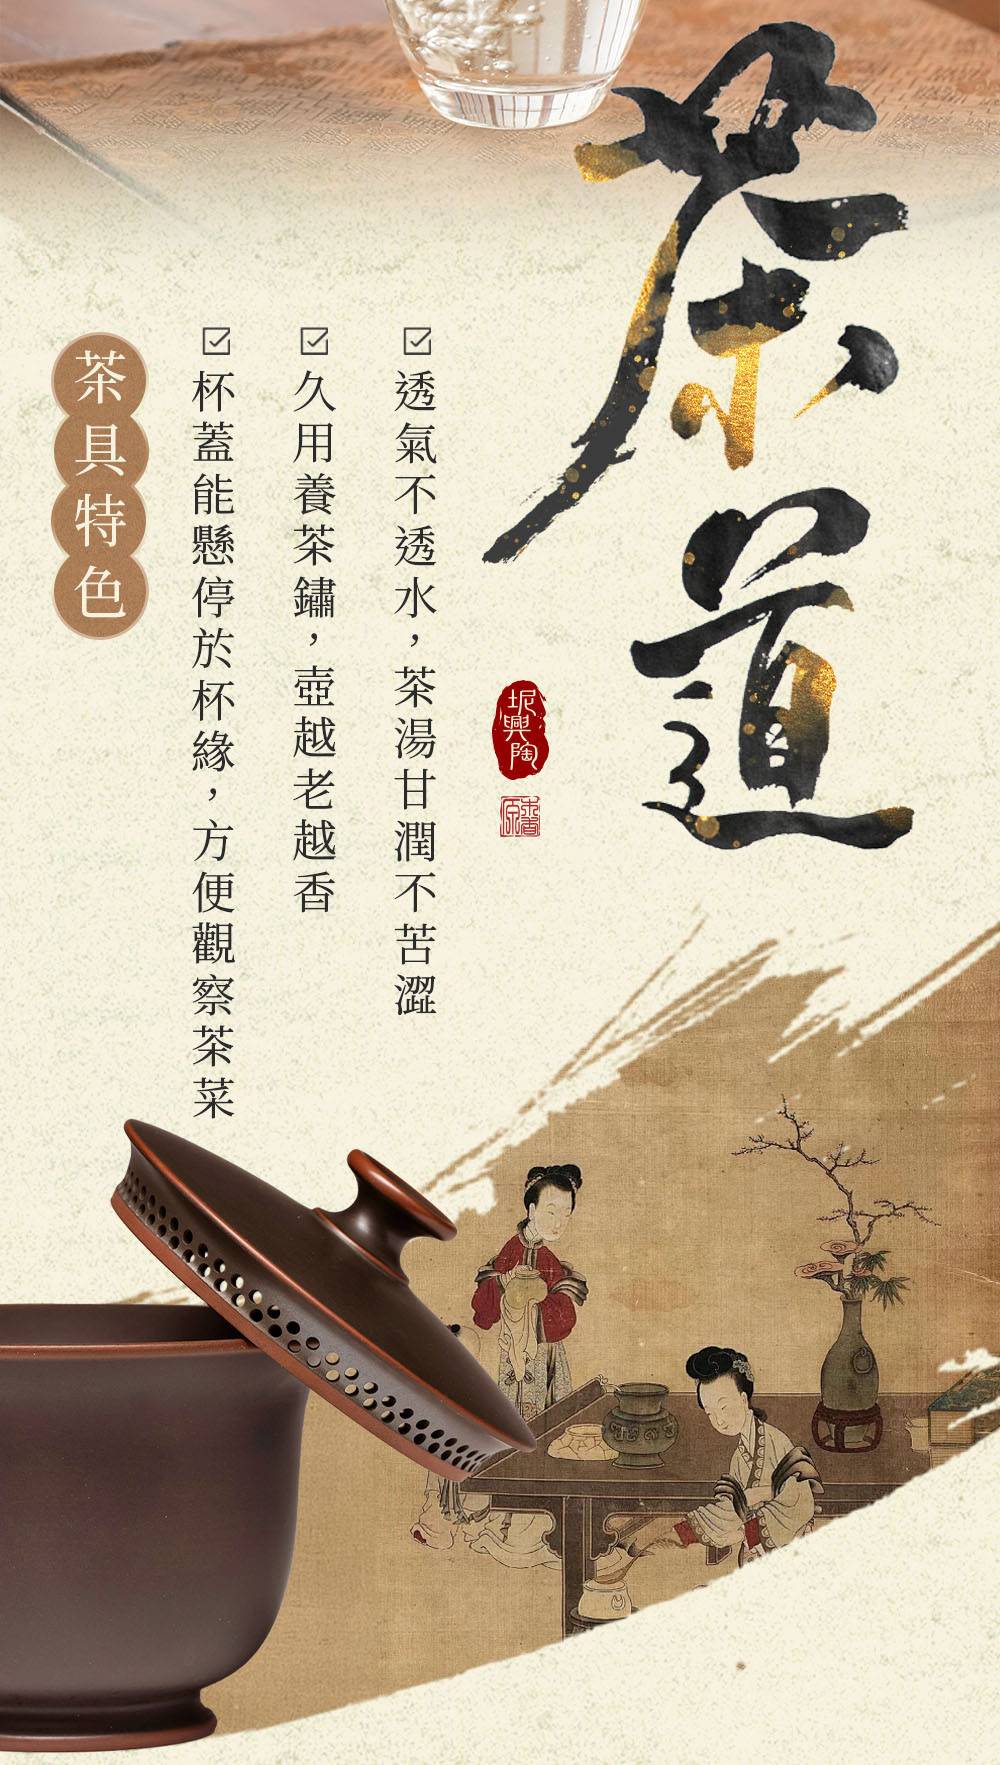 茶道
坭興陶
透氣不透水，茶湯甘潤不苦澀
久用養茶鏽，壺越老越香
杯蓋能懸停於杯緣，方便觀察茶菜
茶具特色